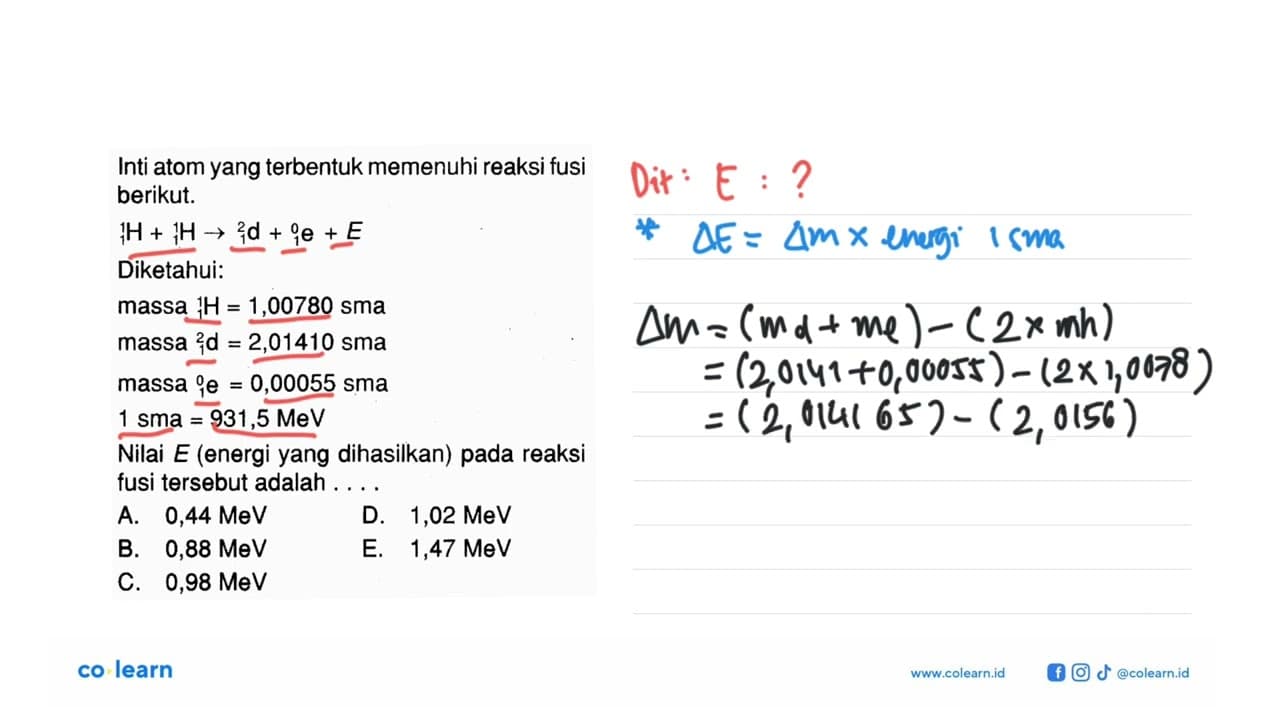 Inti atom yang terbentuk memenuhi reaksi fusi
berikut.
¹₁H + ¹₁H → ²₁d + ⁰₁e + E
Diketahui:
massa ¹₁H = 1,00780 sma
massa ²₁d = 2,01410 sma
massa ⁰₁e = 0,00055 sma
1 sma = 931,5 MeV
Nilai E (energi yang dihasilkan) pada reaksi
fusi tersebut adalah . . . .
A. 0,44 MeV D. 1,02 MeV
B. 0,88 MeV E. 1,47 MeV
C. 0,98 MeV
Dit : E : ?
* ΔE = Δm x energi 1 sma
Δm = (md + me) - (2 x mh)
= (2,0141 + 0,00055) - (2 x 1,0078)
= (2,0141 65) - (2,0156)
co learn
www.colearn.id
@colearn.id